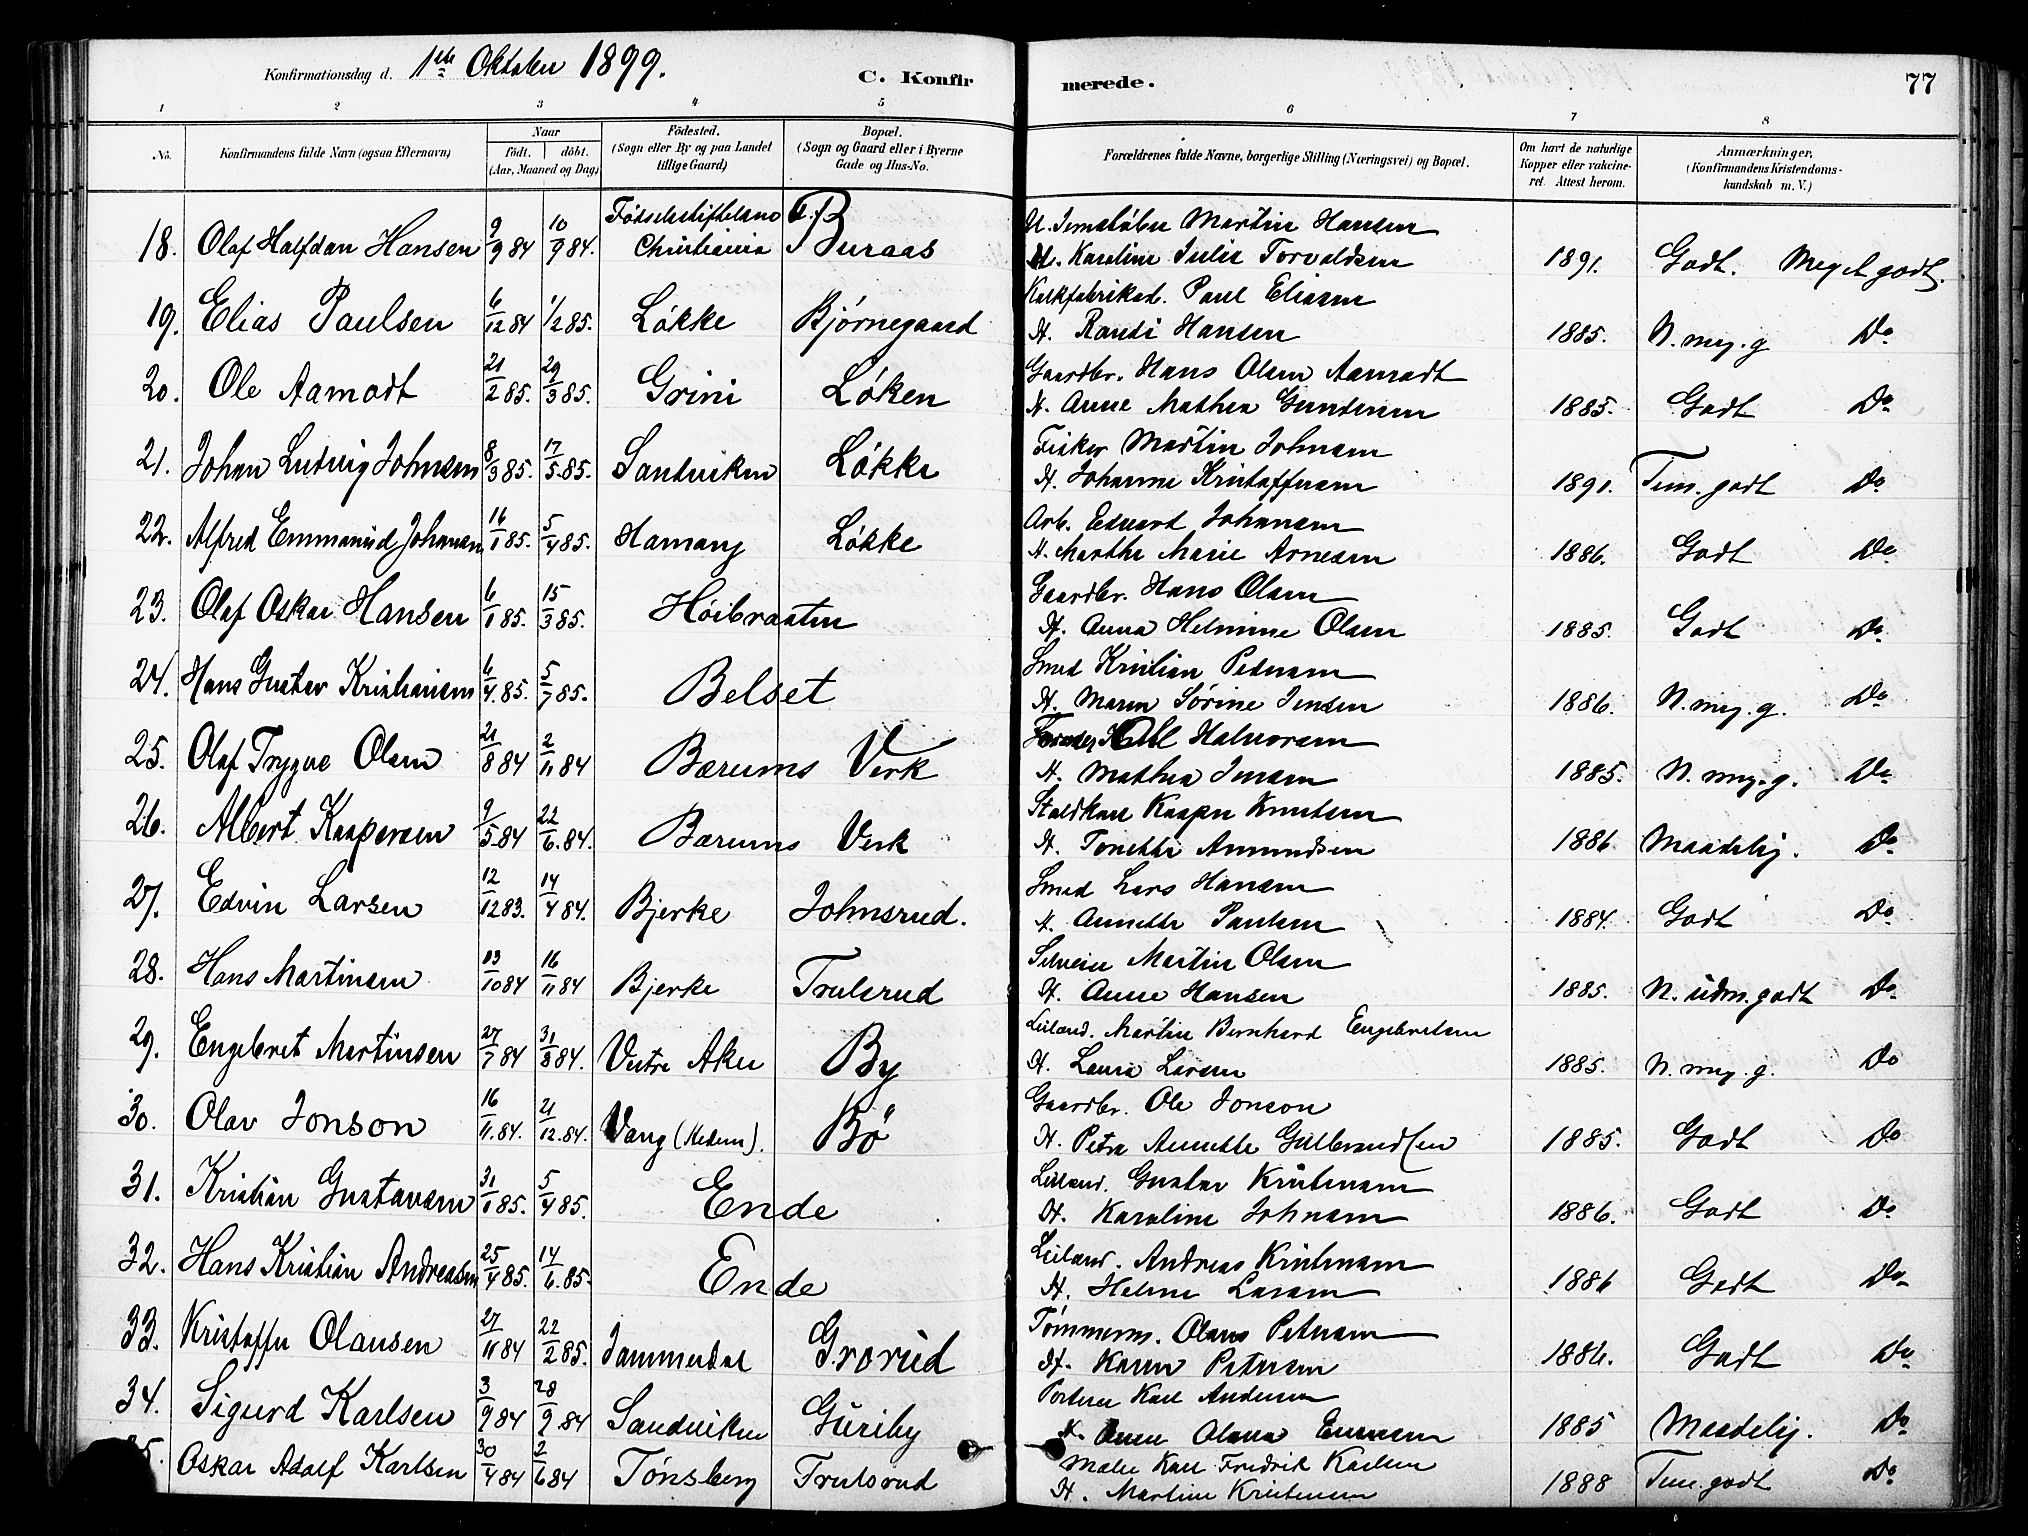 Konfirmationsdag d. 1ste Oktober 1899. C. Konfir merede. 77
1 2 3 4 5 6 7 8
No. Konfirmandens fulde Navn (ogsaa Efternavn) Naar födt. döbt. (Aar, Maaned og Dag) Födested. (Sogn eller By og paa Landet tillige Gaard) Bopæl. (Sogn og Gaard eller i Byerne Gade og Hus-No. Forældrenes fulde Navne, borgerlige Stilling (Næringsvei) og Bopæl. Om havt de naturlige Kopper eller vakcineret. Attest herom. Anmærkninger, (Konfirmandens Kristendomskundskab m. V.)
Fødselsstiftelsen U. Martin Hansen
18. Olaf Halfdan Hansen 9/9 84 10/9 84. Christiania Buraas Karoline Julie Torvaldsen 1891. Godt. Meget godt.
Kalkfabrikarb. Paul Eliasen
19. Elias Paulsen 6/12 84 1/2 85. Løkke Bjørnegaard H. Randi Hansen 1885. N. meg. g Do
Gaardbr. Hans Olsen Aamodt
20. Ole Aamodt 21/2 85. 29/3 85. Grini Løken H. Anne Mathea Gundersen 1885. Godt Do
Fisker Martin Johnsen
21. Johan Ludvig Johnsen 8/3 85. 17/5 85. Sandviken Løkke H. Johanne Kristoffersen 1891. Tem. godt Do
Arb. Edvard Johansen
22. Alfred Emmanuel Johansen 16/1 85. 5/4 85. Hamang Løkke H. Marthe Marie Arnesen 1886. Godt Do
Gaardbr. Hans Olsen
23. Olaf Oskar Hansen 6/1 85. 15/3 85. Høibraaten H. Anna Helmine Olsen 1885. Godt Do
Smed Kristian Pedersen
24. Hans Gustav Kristiansen 6/4 85. 5/7 85. Belset H. Maren Sørine Jensen 1886. N. meg. g. Do
Halvorsen
25. Olaf Trygve Olsen 21/8 84 2/11 84 Bærums Verk H. Mathea Jensen 1885. N. meg. g. Do
Staldkarl Kasper Knutsen
26. Albert Kaspersen 9/5 84 22/6 84. Bærums Verk H. Tonette Amundsen 1886 Maadelig. Do
Smed Lars Hansen
27. Edvin Larsen 12/12 83. 14/4 84. Bjerke Johnsrud. H. Annette Paulsen 1884. Godt Do
Selveier Martin Olsen
28. Hans Martinsen 13/10 84 16/11 84 Bjerke Trulsrud H. Anne Hansen 1885. N. udm. godt Do
Leilænd. Martin Bernhard Engebretsen
29. Engebret Martinsen 27/7 84 31/8 84. Vestre Aker By H. Laura Larsen 1885. N. meg. g. Do
Gaardbr. Ole Jonson
30. Olav Jonson 16/11 84. 21/12 84. Vang (Hedem). Bø H. Petra Annette Gulbrandsen 1885. Godt Do
Leilænd. Gustav Kristensen
31. Kristian Gustavsen 31/1 85. 5/4 85. Ende H. Karoline Johnsen 1886. Godt Do
Leilænd. Andreas Kristensen
32. Hans Kristian Andreasen 25/4 85. 14/6 85. Ende H. Helene Larsen 1886 Godt Do
Tømmerm. Olaus Petersen
33. Kristoffer Olausen 27/11 84 22/2 85. Jammerdal Grorud H. Karen Petersen 1886. Godt Do
Portner Karl Andersen
34. Sigurd Karlsen 3/9 84 28/9 84 Sandviken Guriby H. Anne Olava 1885 Maadelig. Do
Maler Karl Fredrik Karlsen
35. Oskar Adolf Karlsen 30/4 84 2/6 84 Tønsberg Trulsrud H. Martine Kristensen 1888 Tem. godt Do